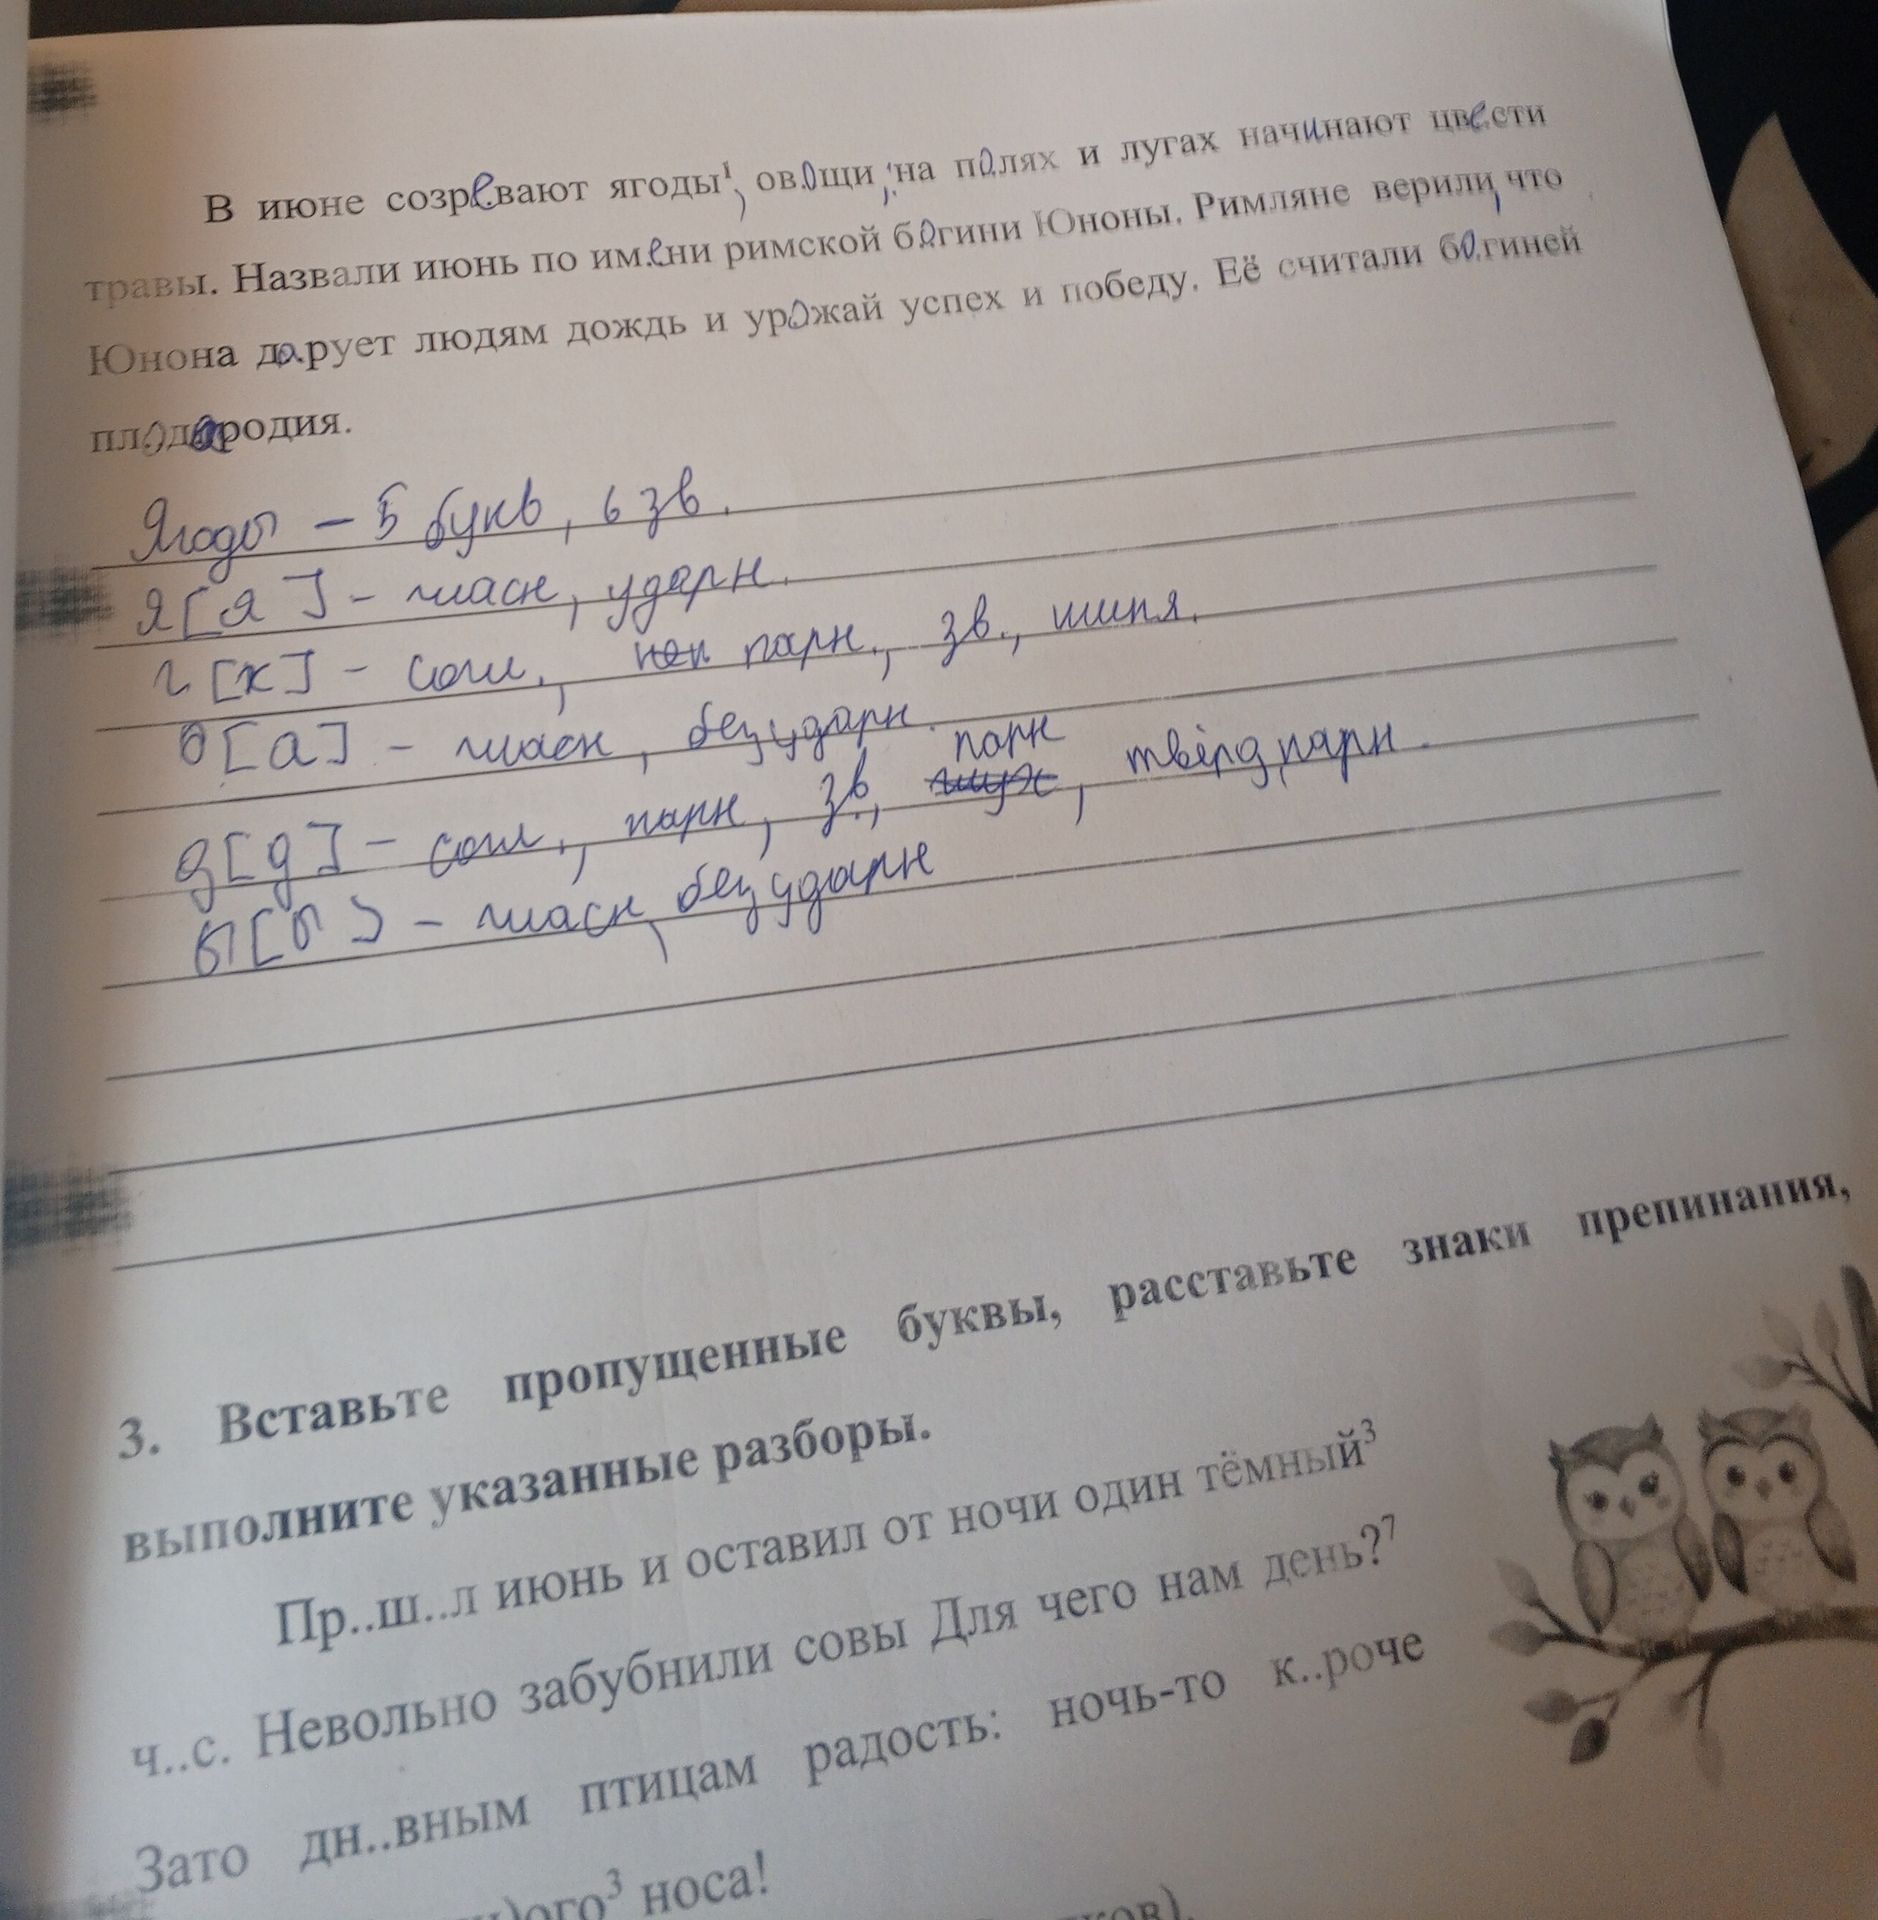 В июне созревают ягоды¹, овощи, на полях и лугах начинают цвести
травы. Назвали июнь по имени римской богини Юноны. Римляне верили, что
Юнона дарует людям дождь и урожай успех и победу. Её считали богиней
плодородия.
Ягоды – 5 букв, 6 зв.
Я [я] – гласн, ударн.
г [х] – согл., неп парн., зв., шипя.
о [а] – гласн, безударн.
парн
д [д] – согл., парн, зв., глух, твёрд, парн.
ы [ы] – гласн, безударн
3. Вставьте пропущенные буквы, расставьте знаки препинания,
выполните указанные разборы.
Пр..ш..л июнь и оставил от ночи один тёмный³
ч..с. Невольно забубнили совы Для чего нам день?⁷
Зато дн..вным птицам радость: ночь-то к..роче
)ого³ носа!
ков).